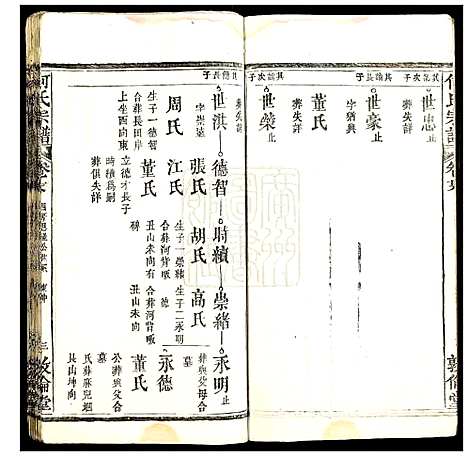 何氏宗譜
卷
敦倫堂
其諭次子
世忠止
葬失詳
其諭長子
世豪止
字猶興
董氏
葬失詳
其諭次子
世榮止
葬失詳
其德長子
世洪
字崇遠
周氏
生子一德智
合葬長田岸
上坐酉向東
德智
張氏
江氏
董氏
立德才長子
時積爲嗣
葬俱失詳
時績
胡氏
生子一崇緒
合葬河背堰
丑山未向
崇緒
高氏
生子二永明
永德
合葬河背堰
丑山未向
永明止
葬與父母合
墓
永德
董氏
公葬與父合
墓
氏葬
艮山坤向
何氏宗譜
卷
三
敦倫堂